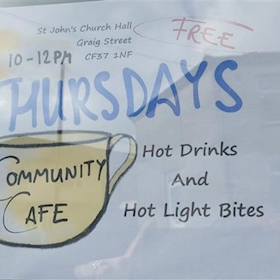 St John's Church Hall
Graig Street
CF37 1NF
FREE
10-12PM
THURSDAYS
COMMUNITY
CAFE
Hot Drinks
And
Hot Light Bites